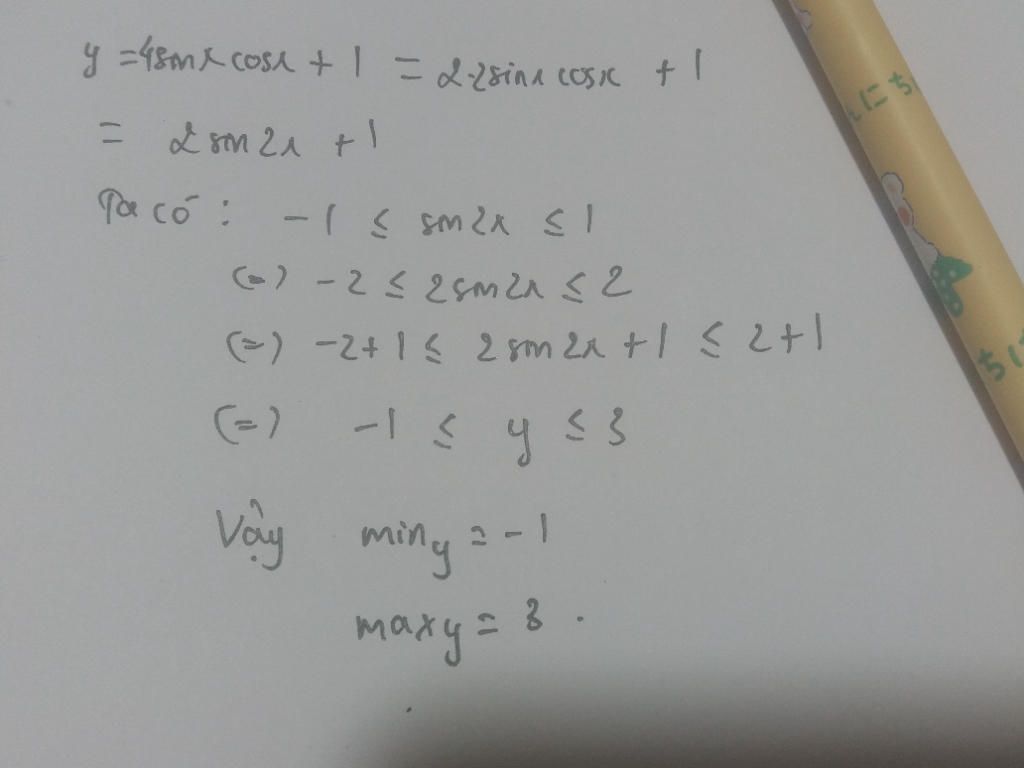 y = 4sinx cosx + 1 = 2.2sinx cosx + 1
= 2 sin 2x + 1
Ta có : -1 ≤ sin2x ≤ 1
(=) -2 ≤ 2sin2x ≤ 2
(=) -2+1 ≤ 2 sin 2x + 1 ≤ 2+1
(=) -1 ≤ y ≤ 3
Vậy min y = -1
max y = 3 .